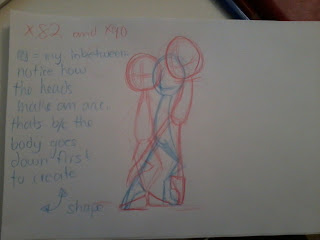 x82 and x90
= my inbetween
notice how
the heads
make an arc.
thats b/c the
body goes
down first
to create
shape